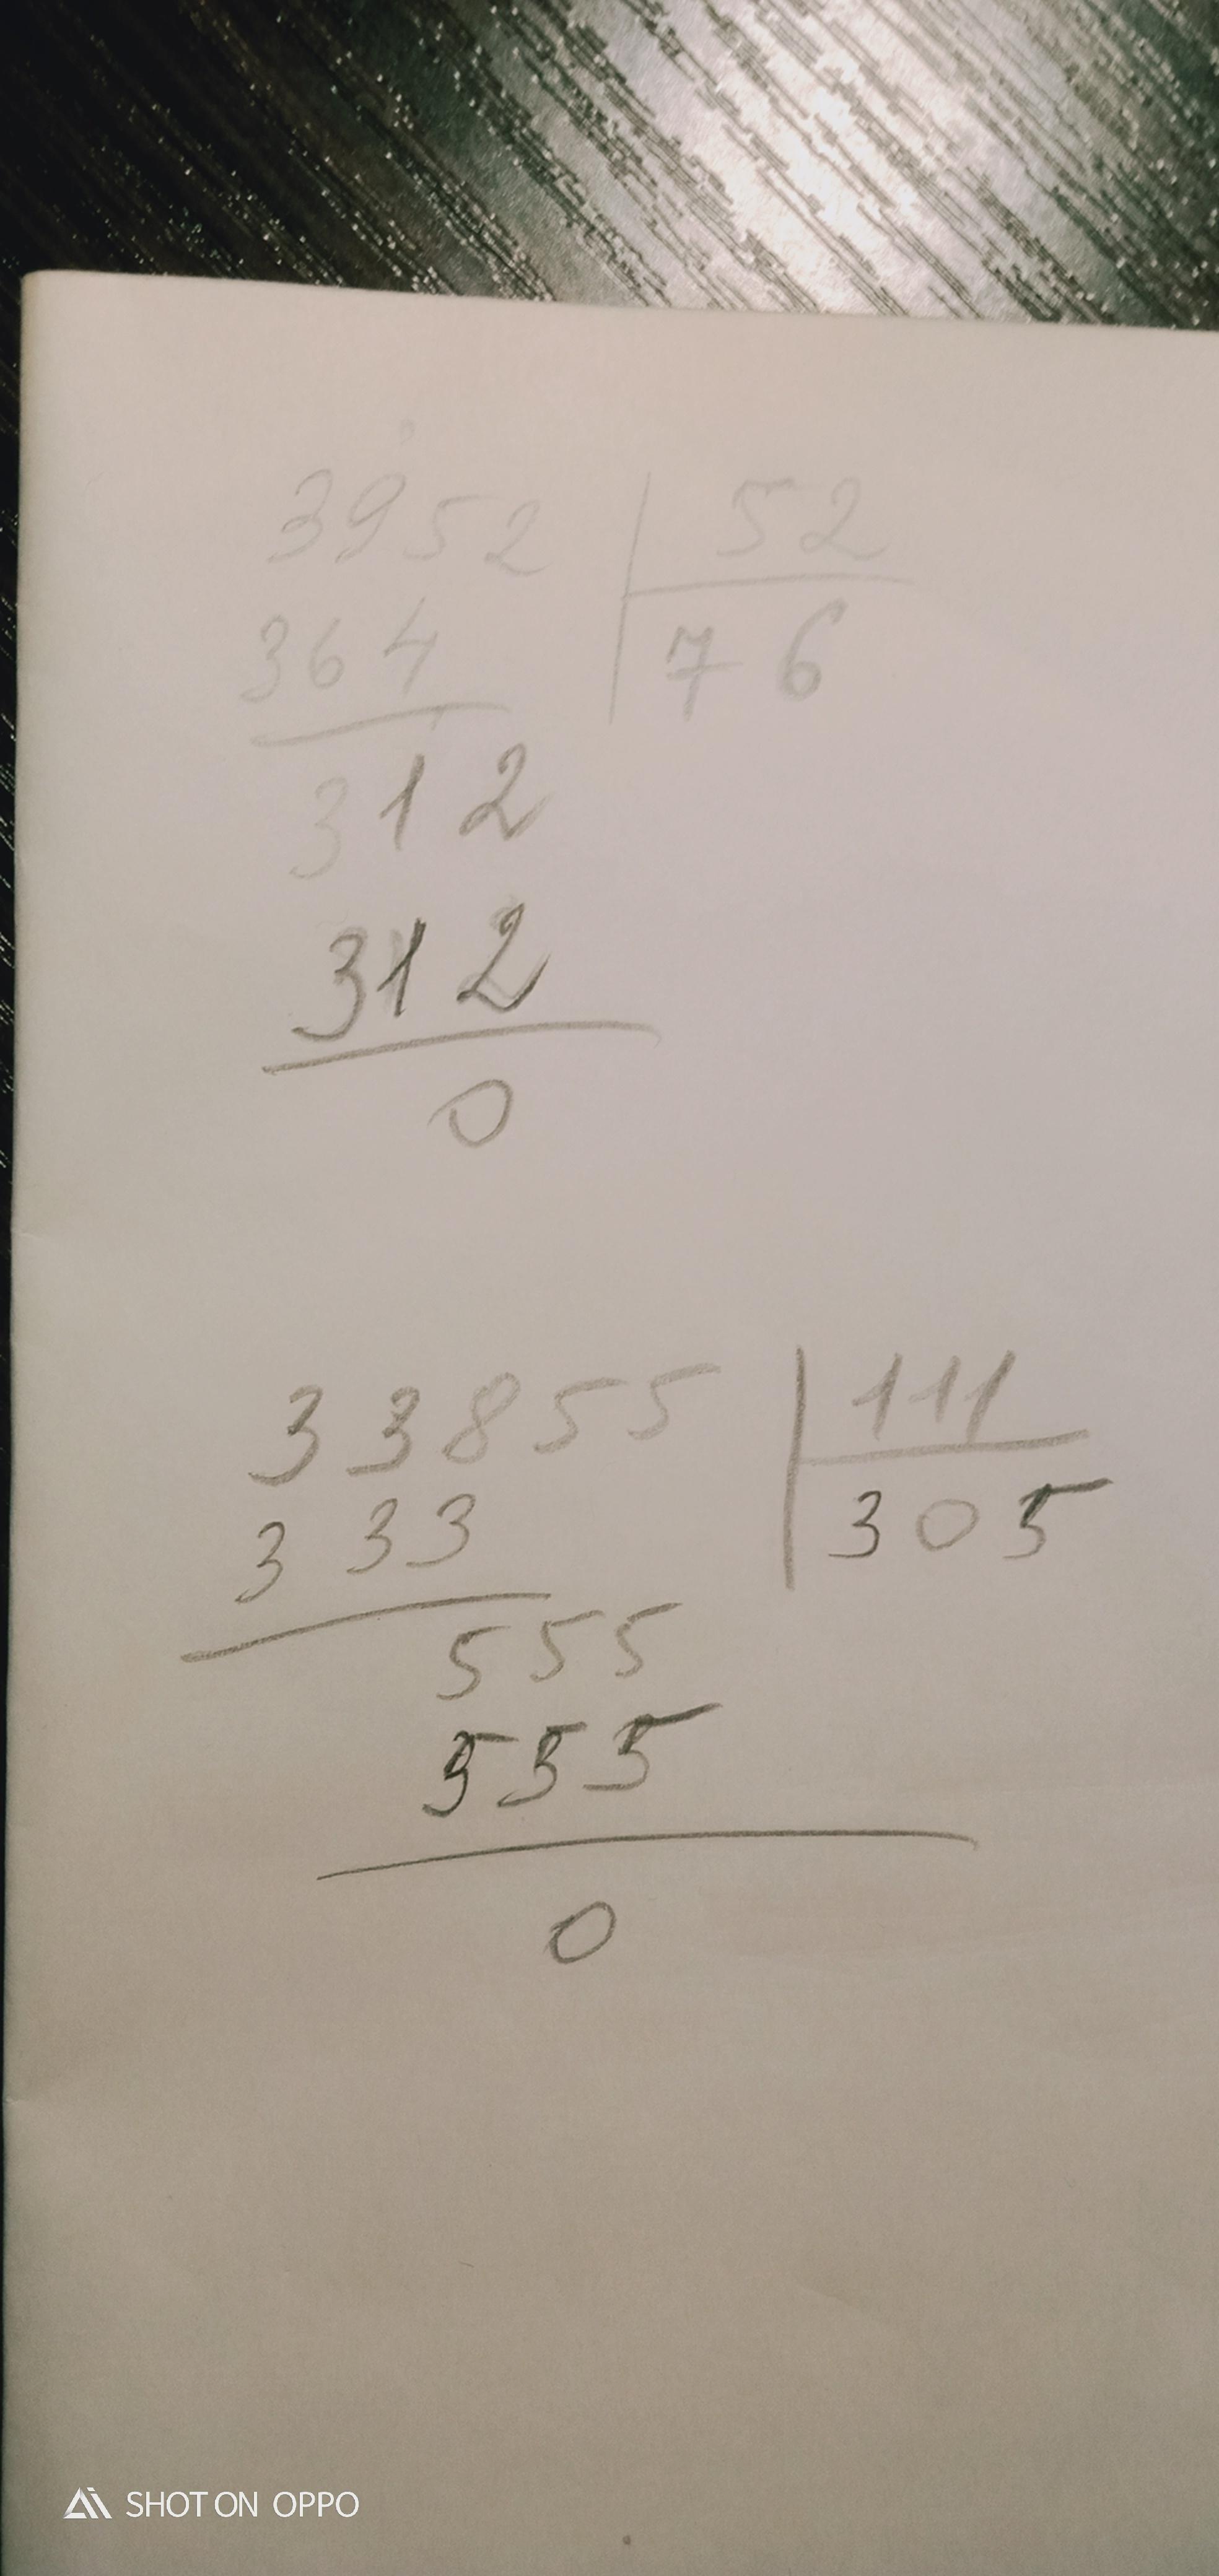 3952 52
364 76
312
312
0
33855 111
333 305
555
555
0
SHOT ON OPPO